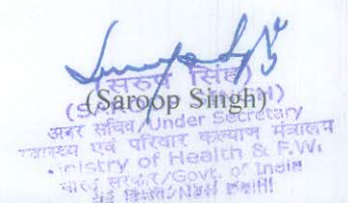 (सरुप सिंह)
(Saroop Singh)
अवर सचिव/Under Secretary
स्वास्थ्य एवं परिवार कल्याण मंत्रालय
Ministry of Health & F.W.
भारत सरकार/Govt. of India
नई दिल्ली/New Delhi